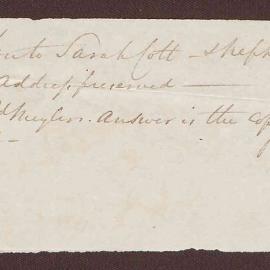 to Sarah Cott - Sheph
Address preserved —
Meylers. Answer is the cop